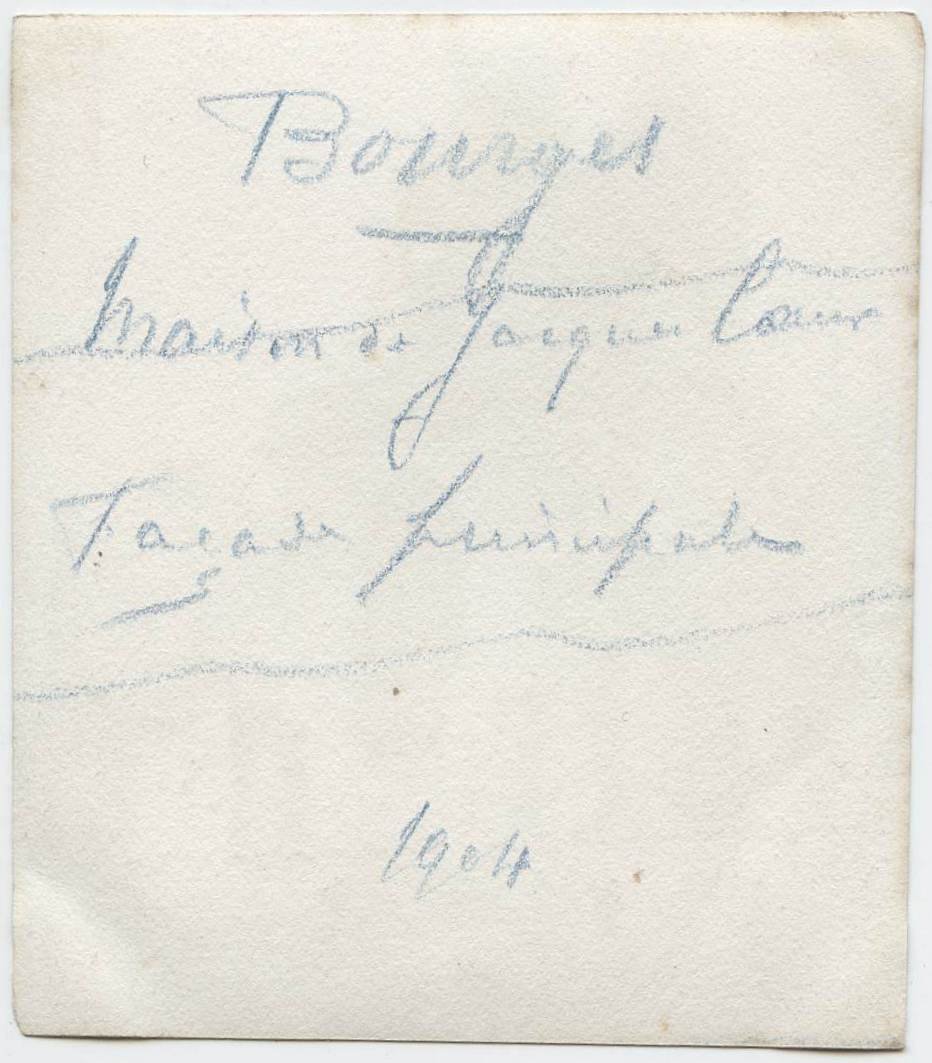 Bourges
Maison de Jacques Cœur
Façade principale
1904